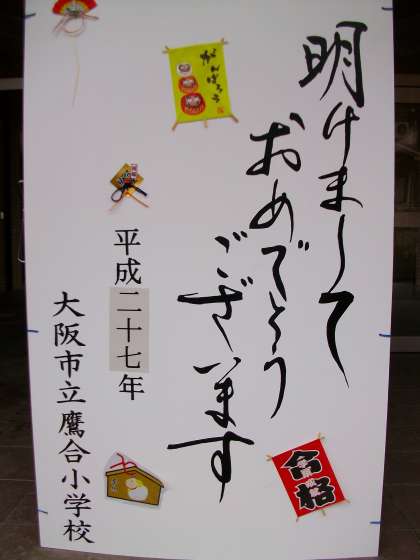 明けまして
おめでとう
ございます
平成二十七年
大阪市立鷹合小学校
がんばろう
合格